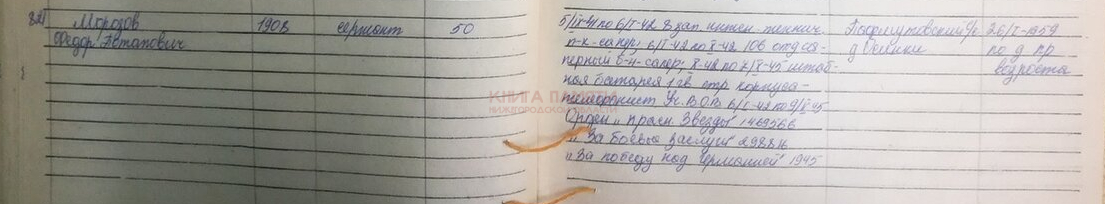 821 Морозов 1908 сержант 50
Федор Потапович
5/IX-41 по 6/I-42 8 зап. инжен. технич.
п-к - сапер; 6/I-42 по X-42 106 отд са-
перный б-н - сапер; X-42 по X-45 штаб-
ная батарея 1 гв. стр. корпуса -
телефонист Уч. В.О.В. 6/I-42 по 9/V-45
Орден „Красн. Звезды" 1469566
„За боевые заслуги"
„За победу над Германией" 1945
д
26/I-1959
по д пр
возраста
КНИГА ПАМЯТИ
НИЖЕГОРОДСКОЙ ОБЛАСТИ